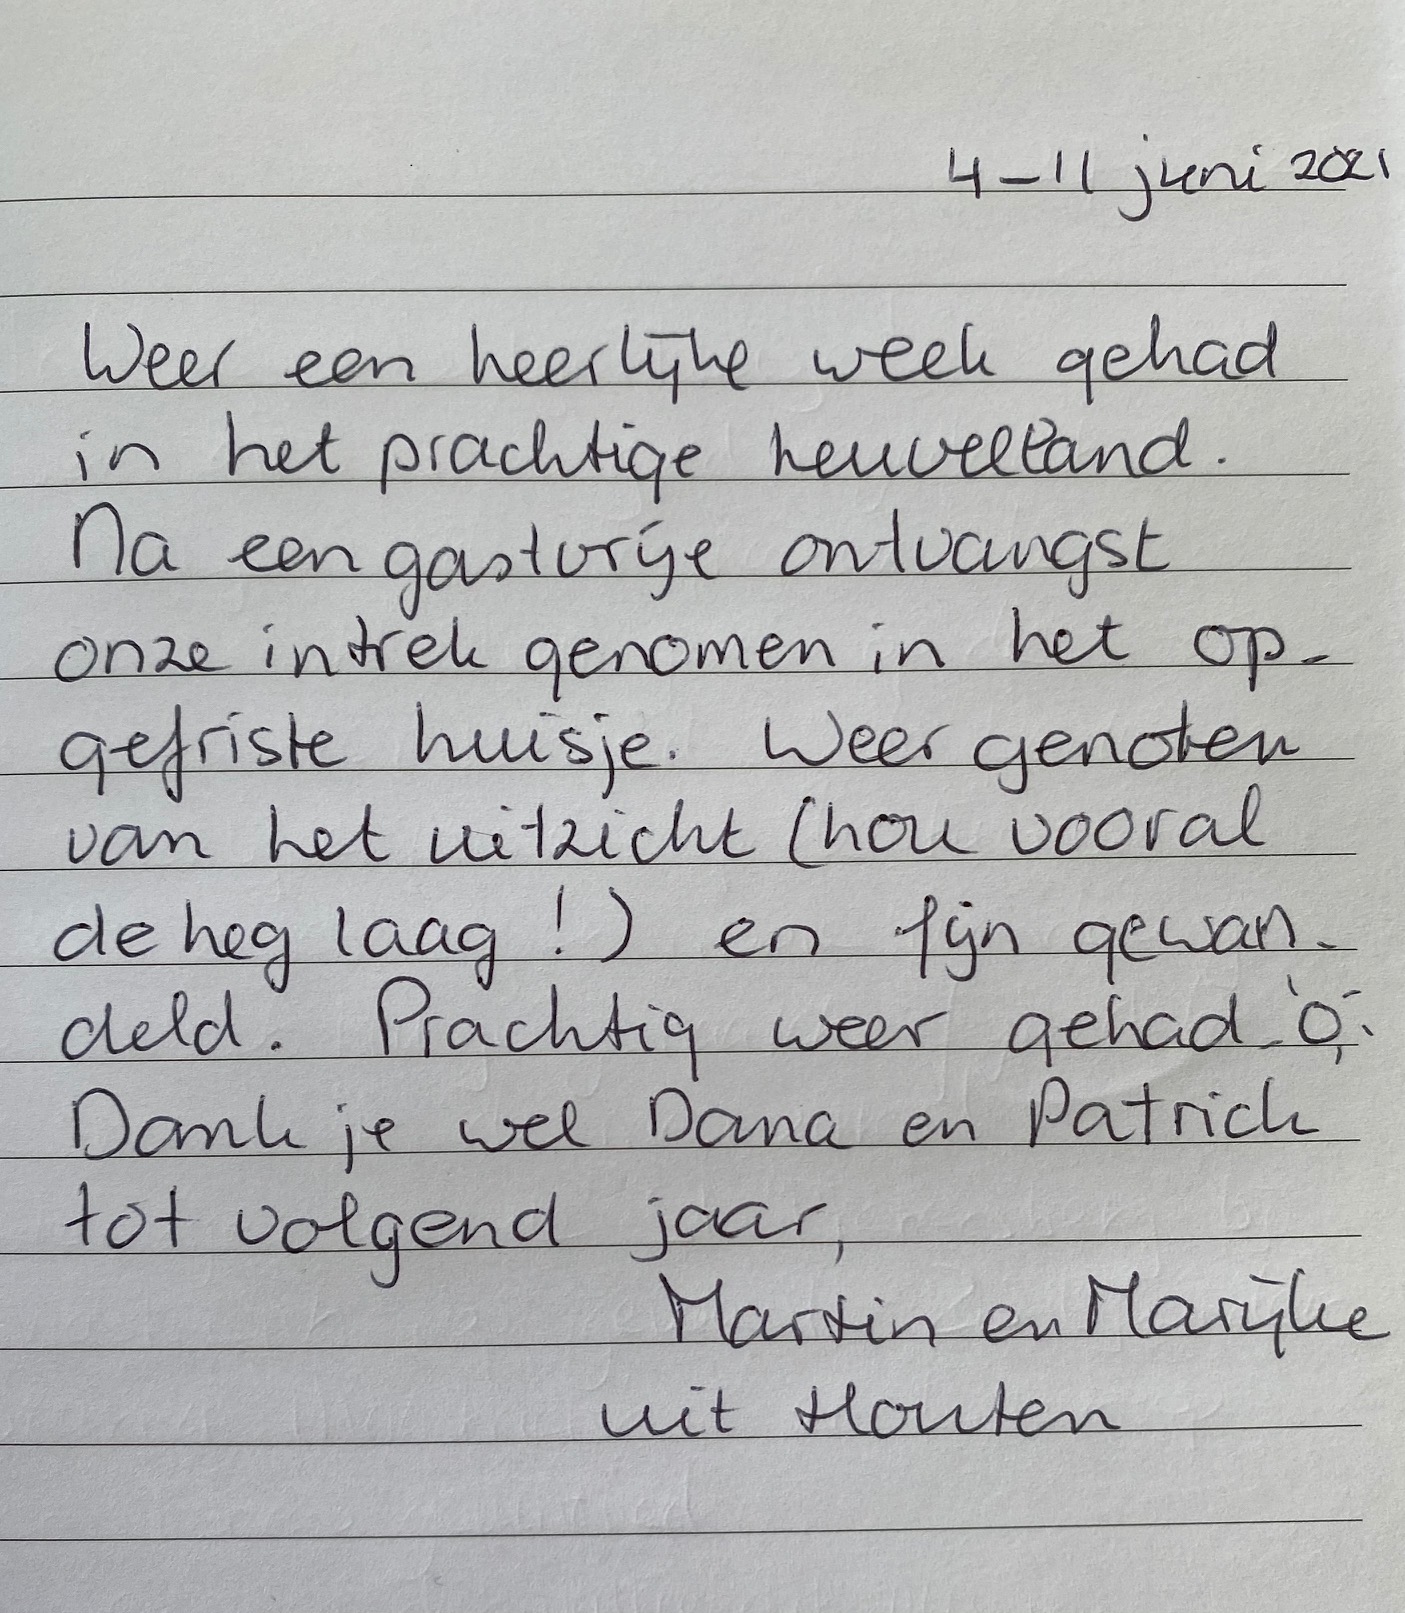 4-11 juni 2021
Weer een heerlijke week gehad
in het prachtige heuvelland.
Na een gastvrije ontvangst
onze intrek genomen in het op-
gefriste huisje. Weer genoten
van het uitzicht (hou vooral
de heg laag!) en fijn gewan-
deld. Prachtig weer gehad
Dank je wel Dana en Patrick
tot volgend jaar,
Martin en Marijke
uit Houten